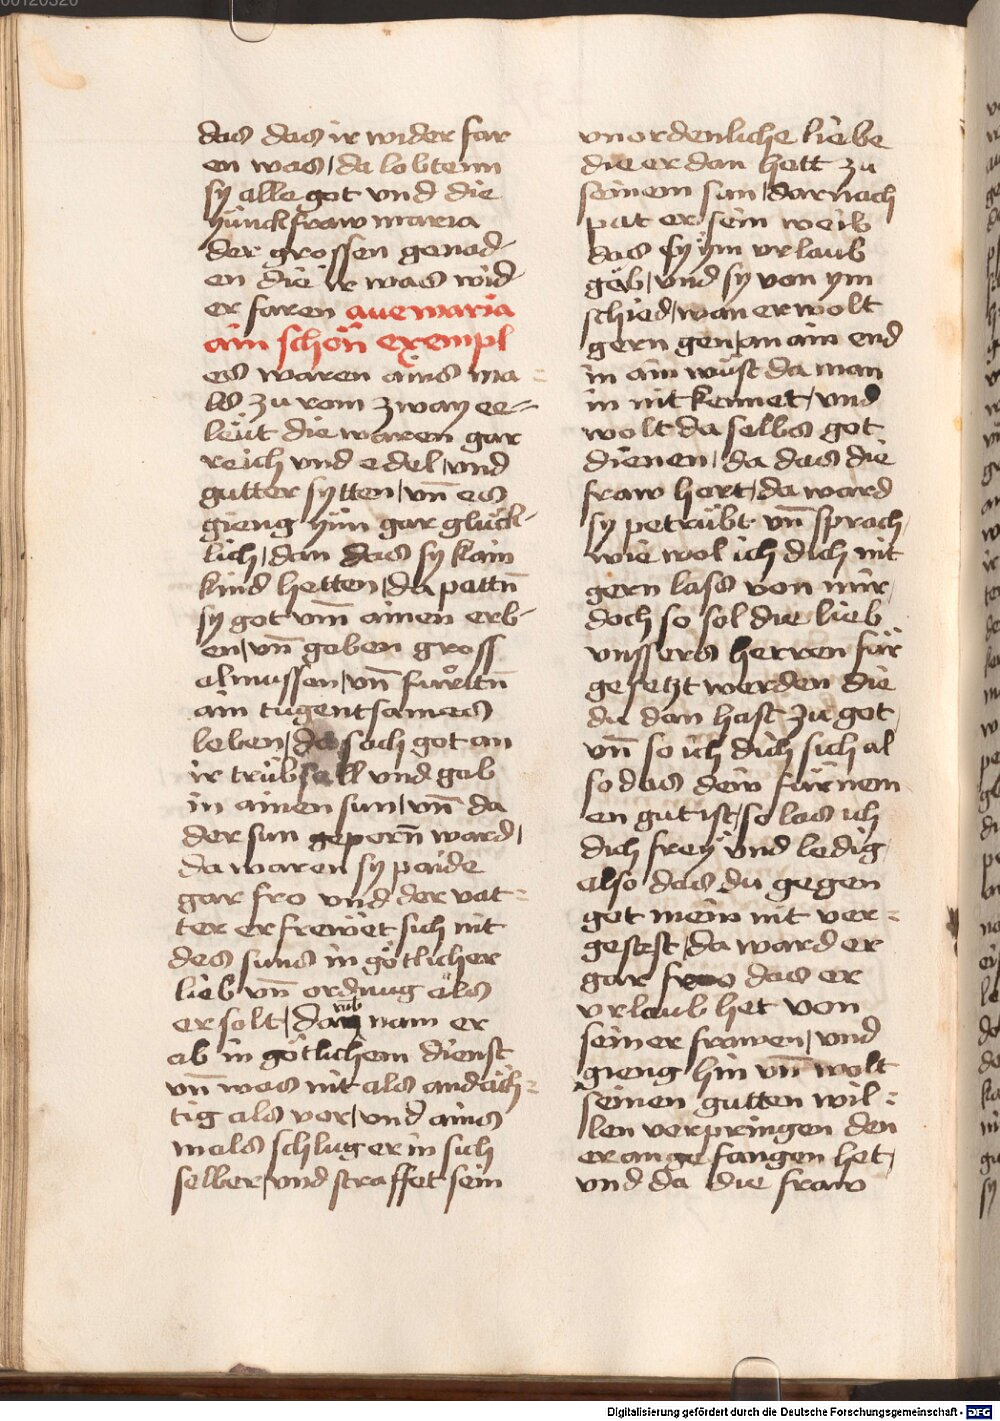 das das ir wider far
en was / da lobtenn
sy alle got vnd die
yünckfraw maria
der grossen genad-
en die ir was wid-
er faren aue maria
ain schön exempl
es waren ains ma=
ls zu rom zway ee=
leüt die waren gar
reich vnd edel / vnd
gutter sytten / vn̄ es
gieng yiin gar glückt-
lich / dan das sy kain
kind hetten / da pattn̄
sy got vm̄ ainen erb-
en / vn̄ gaben gross
almussen / vn̄ fürtn̄
ain tugentsames
leben / da sach got an
ir trübsall vnd gab
in ainen sun / vnn̄ da
der sun geporn̄ ward /
da waren sy paide
gar fro vnd der vat=
ter er frewet sich nit
des suns in götlicher
lieb vn̄ ordnug als
er solt / nam er
ab in götlichem dienst
vn̄ was nit als andäch=
tig als vor / vnd ains
mals schlug er in sich
selber / vnd straffet sein
vnordenliche liebe
die er dan hett zu
seinem sun / darnach
pat er sein weib
das sy ym vrlaub
geb / vnd sy von ym
schied / wan er wolt
gern gen / an ain end
in ain wüst da man
in nit kennet / vnd
wolt da selbs got
dienen / da das die
fraw hort / da ward
sy petrübt vn̄ sprach /
wie wol ich dich nit
gern lass von mir /
doch so sol die lieb
vnssers herren für
gesetzt werden die
du dan hast zu got /
vn̄ so ich dich sich al
so das dein fürnem
en gut ist / so las ich
dich frey vnd ledig
also das du gegen
got mein nit ver=
gesest / da ward er
gar das er
vrlaub het von
seiner frawen / vnd
gieng hin vn̄ wolt
seinen gutten wil=
len verpringen den
er ange fangen het /
vnd da die fraw
Digitalisierung gefördert durch die Deutsche Forschungsgemeinschaft - DFG